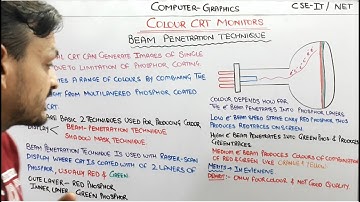 COMPUTER-GRAPHICS
CSE-IT/ NET
COLOUR CRT MONITORS
BEAM PENETRATION TECHNIQUE
CRT CAN GENERATE IMAGES OF SINGLE
DUE TO LIMITATION OF PHOSPHOR COATING.
A RANGE OF COLOURS BY COMBINING THE
LIGHT FROM MULTILAYERED PHOSPHOR COATED
CRT.
ARE BASIC 2 TECHNIQUES USED FOR PRODUCING COLOUR
DISPLAY
BEAM-PENETRATION TECHNIQUE
SHADOW MASK TECHNIQUE
BEAM PENETRATION TECHNIQUE IS USED WITH RASTER-SCAN
DISPLAY WHERE CRT IS COATED WITH OF 2 LAYERS OF
PHOSPHOR, USUALLY RED & GREEN
LAYER → RED PHOSPHOR
LAYER → GREEN PHOSPHOR
COLOUR DEPENDS HOW FAR
THE BEAM PENETRATES INTO PHOSPHOR LAYERS
LOW SPEED STRIKE OVER RED PHOSPHOR THUS
PRODUCES RED TRACES ON SCREEN.
HIGH BEAM PENETRATES INTO GREEN PHOS & PRODUCES
GREEN TRACES.
MEDIUM BEAM PRODUCES COLOURS OF COMBINATION
OF RED & GREEN LIKE ORANGE & YELLOW
MERITS → INEXPENSIVE
DEMERIT:- ONLY FOUR COLOUR & NOT GOOD QUALITY